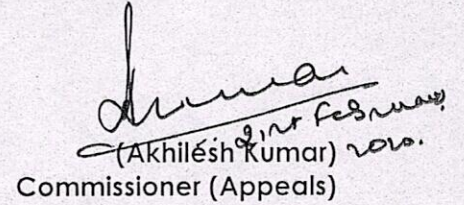 21st February
2020.
(Akhilesh Kumar)
Commissioner (Appeals)